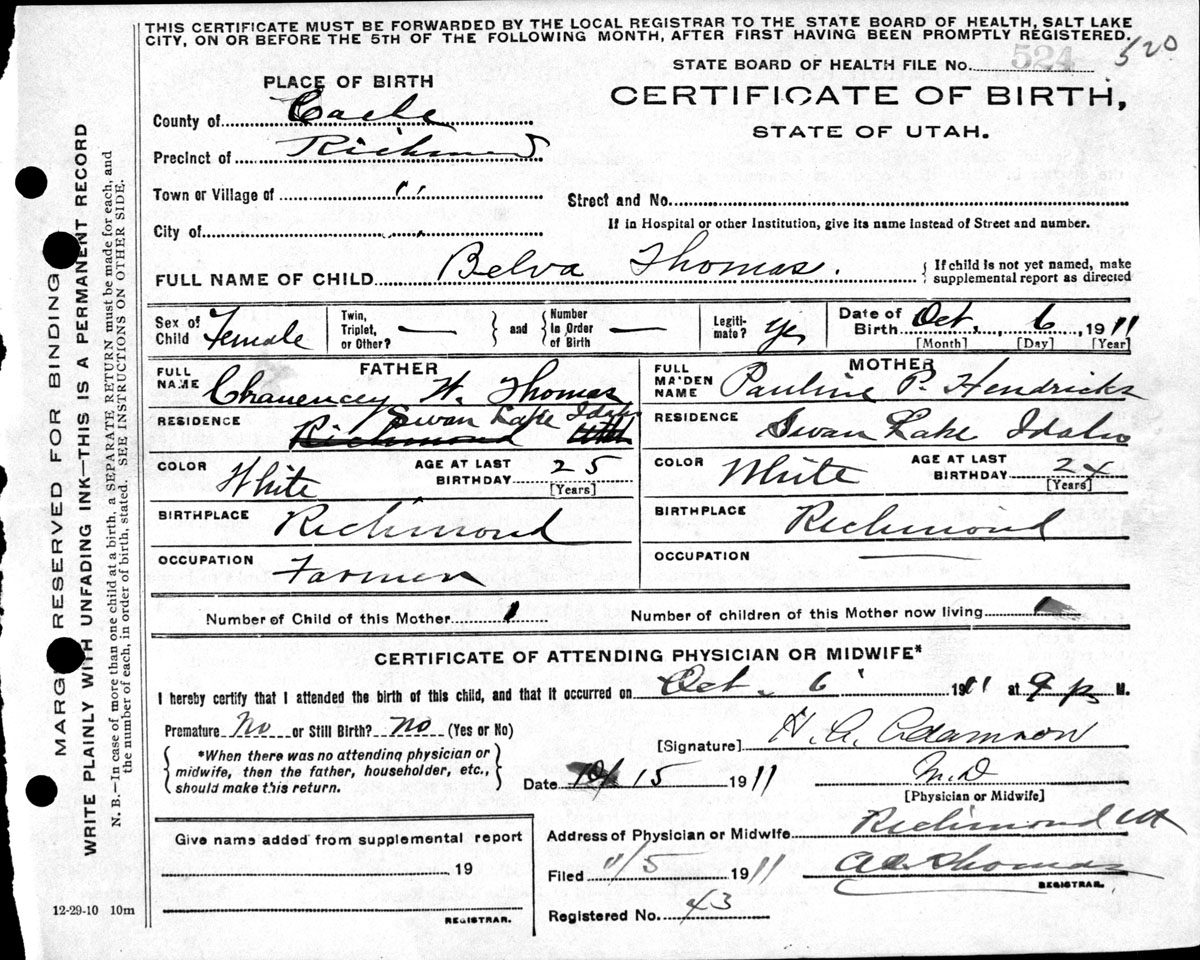 THIS CERTIFICATE MUST BE FORWARDED BY THE LOCAL REGISTRAR TO THE STATE BOARD OF HEALTH, SALT LAKE
CITY, ON OR BEFORE THE 5TH OF THE FOLLOWING MONTH, AFTER FIRST HAVING BEEN PROMPTLY REGISTERED.
STATE BOARD OF HEALTH FILE No. 524 520
PLACE OF BIRTH
CERTIFICATE OF BIRTH,
STATE OF UTAH.
County of Cache
Precinct of Richmond
Town or Village of "
Street and No.
City of "
If in Hospital or other Institution, give its name instead of Street and number.
FULL NAME OF CHILD Belva Thomas. { If child is not yet named, make
supplemental report as directed
Sex of Child Female
Twin, Triplet, or Other? — } and { Number In Order of Birth —
Legiti-mate? Yes
Date of Birth Oct. 6, 1911
[Month] [Day] [Year]
FATHER
FULL NAME Chauencey W. Thomas
RESIDENCE Swan Lake Idaho
Richmond Utah
COLOR White AGE AT LAST BIRTHDAY 25
[Years]
BIRTHPLACE Richmond
OCCUPATION Farmer
MOTHER
FULL MAIDEN NAME Pauline P. Hendricks
RESIDENCE Swan Lake Idaho
COLOR White AGE AT LAST BIRTHDAY 24
[Years]
BIRTHPLACE Richmond
OCCUPATION —
Number of Child of this Mother 1 Number of children of this Mother now living 1
CERTIFICATE OF ATTENDING PHYSICIAN OR MIDWIFE*
I hereby certify that I attended the birth of this child, and that it occurred on Oct. 6 1911 at 9 p M.
Premature No or Still Birth? No (Yes or No)
{ *When there was no attending physician or
midwife, then the father, householder, etc.,
should make this return. }
[Signature] H. A. Adamson
Date 10/15 1911 M.D
[Physician or Midwife]
Give name added from supplemental report
19
REGISTRAR.
Address of Physician or Midwife Richmond Ut
Filed 11/5 1911 Thomas
REGISTRAR.
Registered No. 43
12-29-10 10m
MARGIN RESERVED FOR BINDING
WRITE PLAINLY WITH UNFADING INK—THIS IS A PERMANENT RECORD
N. B.—In case of more than one child at a birth, a SEPARATE RETURN must be made for each, and
the number of each, in order of birth, stated. SEE INSTRUCTIONS ON OTHER SIDE.